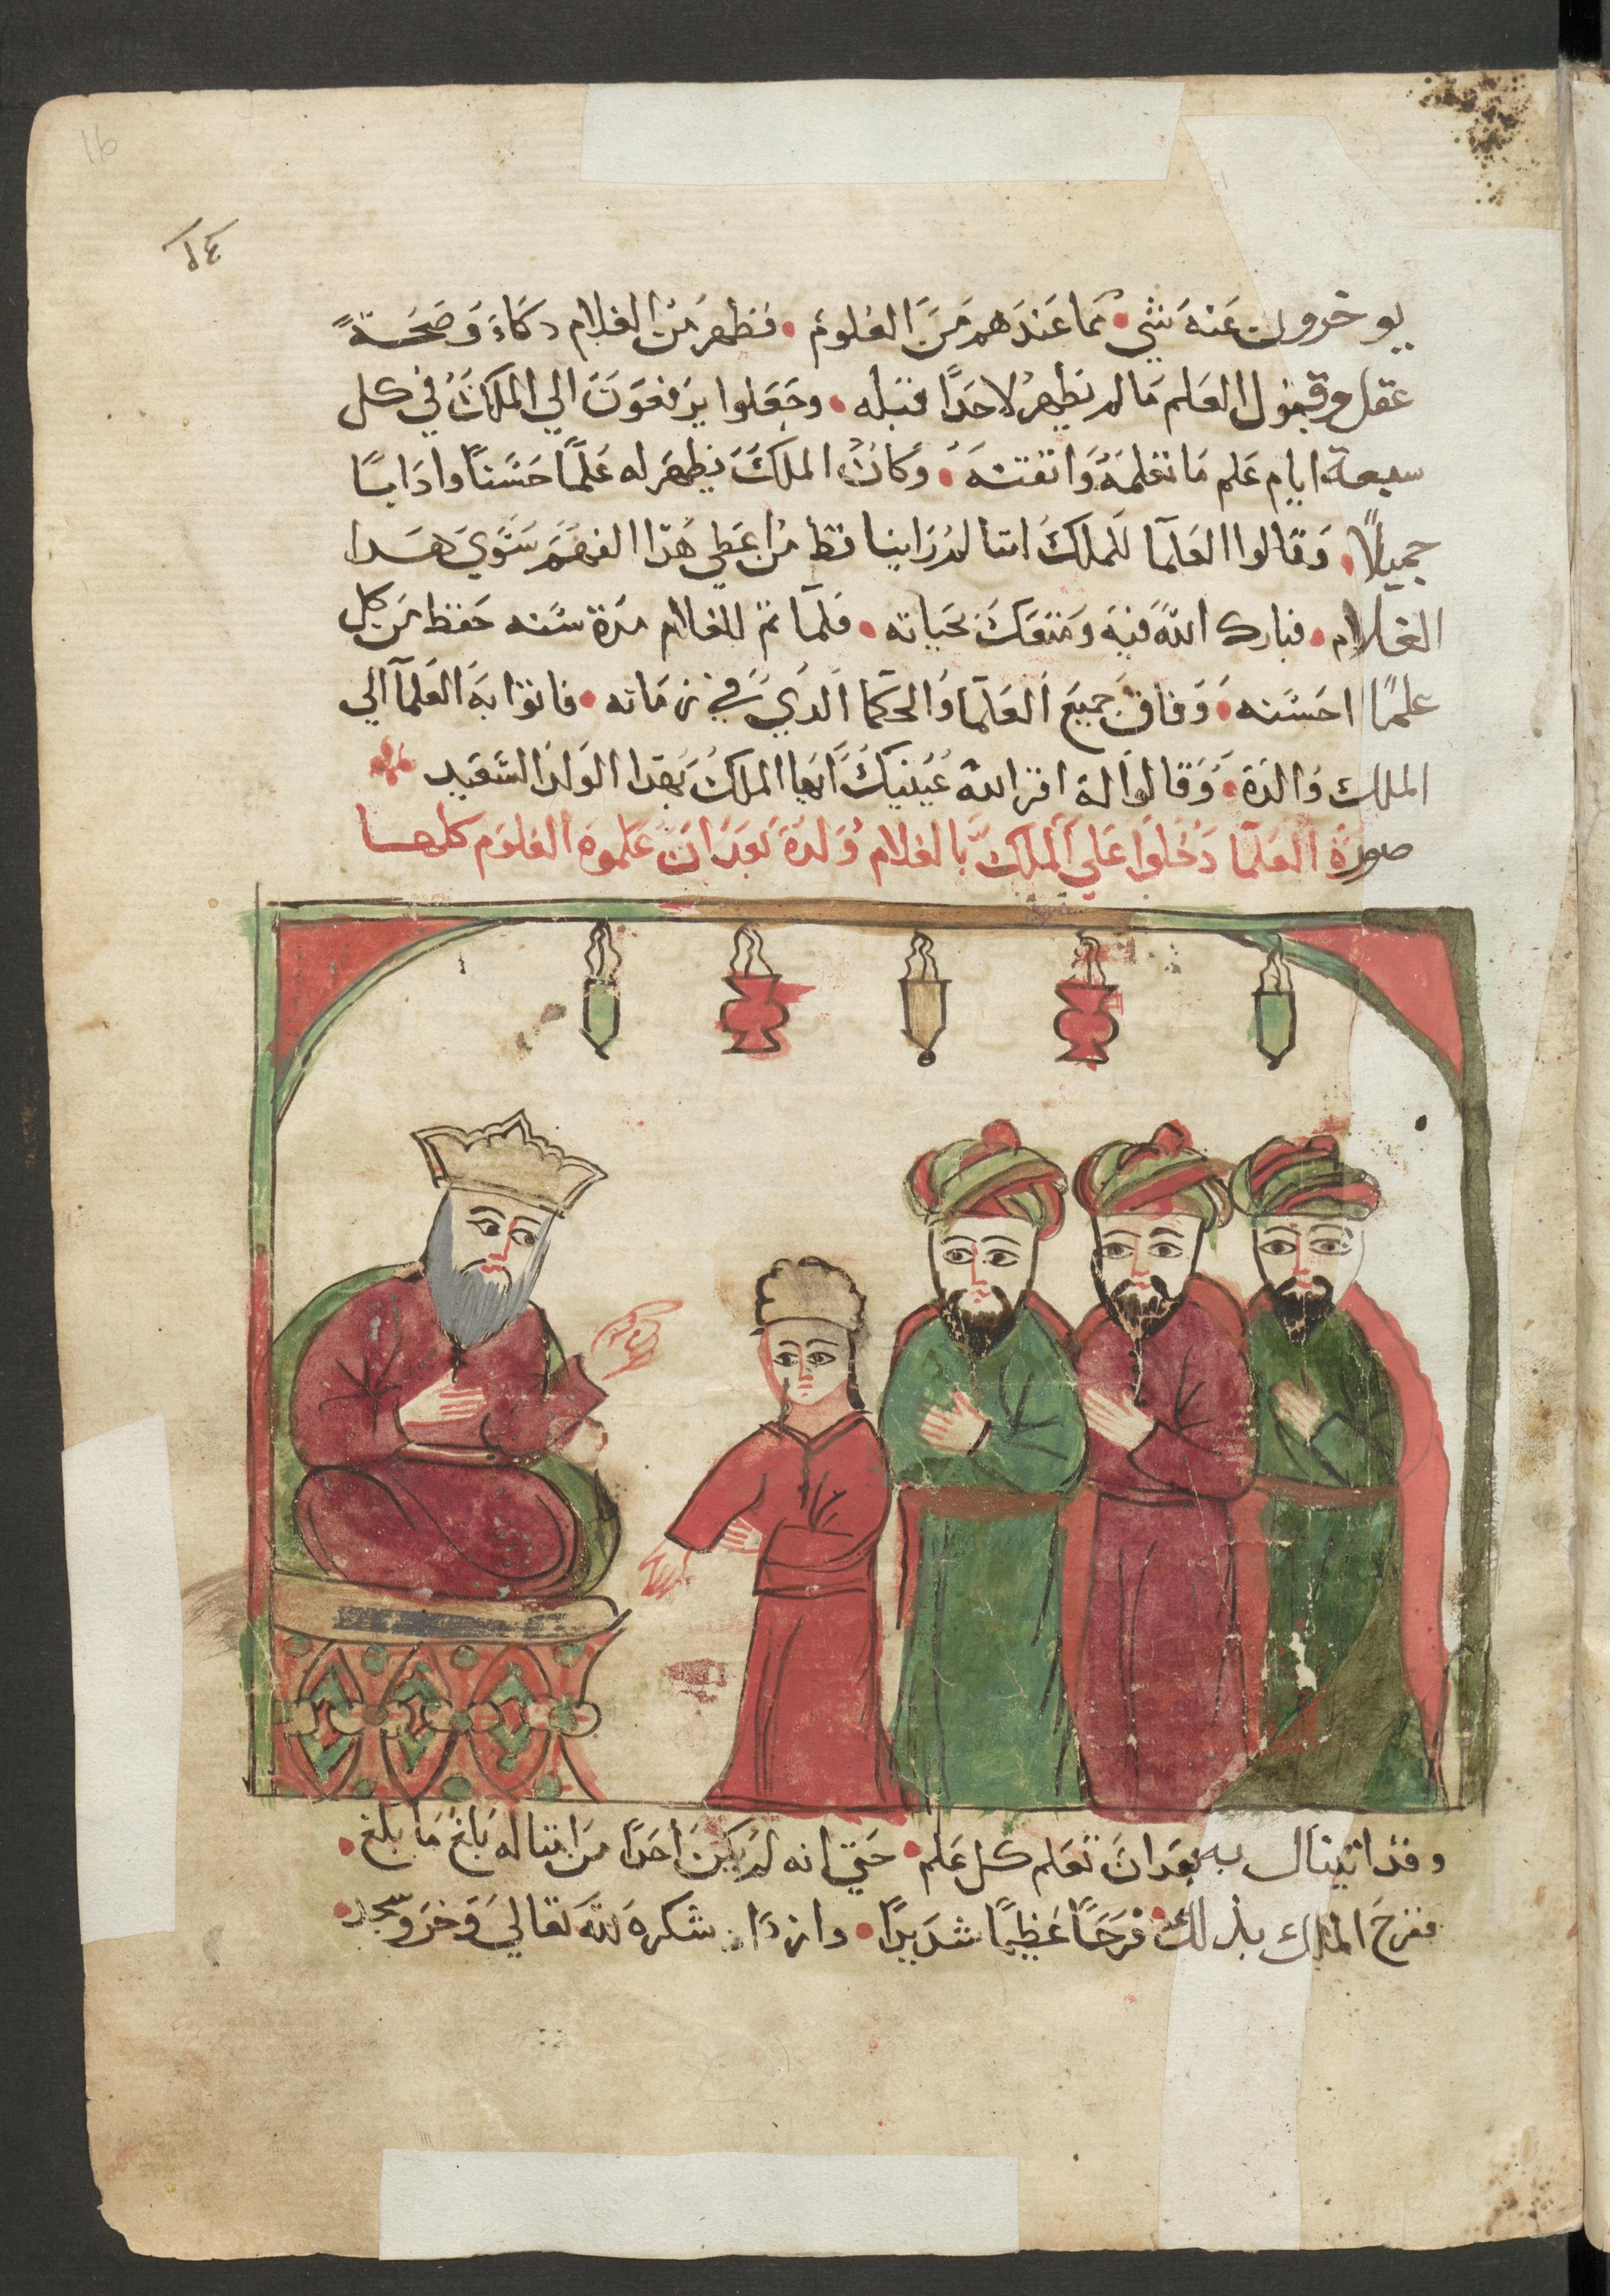 16
١٤
يوخرون عَنهَ شي • مما عَندَهم مَنَ العُلومُ • فظهرَ مَنَ الغلام دكَاءً وَصَحَةً
عقل وقبول العَلم مَا لم يظهرُ لاحَدًا قبله • وجَعَلوا يرَفعَوَنَ الي الملكَ في كل
سبعة ايام عَلم مَا تعَلمَهُ وَاتقتهَ • وَكانُ الملكَ يظهَر له عَلمًا حَسَناً وادَابًا
جميلًا • وَقالوا العَلمآ للملكَ اننا لمَ رَاينا قط مُن اعَطي هَدا الفهَمَ سَوَي هَدا
الغلام • فبارك اللهَ فيهَ وَمتعَكَ بحَياته • فلمآ تم للغلام مَدة سَنه حَفظ مَن كل
علمًا احَسَنه • وَفاق جَميعَ العَلمَا وَالحكَما الَدي في زمَانه • فاتوُا بهَ العَلمآ الي
الملك وَالدَهَ • وَقالوا لهَ اقر اللهَ عَينيكَ ايَها الملكُ بهَدا الوَلدَ السَعَيد
صورَةَ العَلمآ دَخلوَا عَلي الملكَ بالغلام وَلدَهَ بعَدَ ان عَلموهَ العَلوَم كلها
وقدَ اتينال به بعَدَ انَ تعَلم كل عَلم • حَتي انه لمَ يكنَ احَدًا مَن امتاله بَلغَ مَا بلغَ •
ففرَحَ الملك بدلك • فرَحَاً عَظيمًا شدَيدًا • وازدَاد شكرهَ للهَ تعَاليَ وَخرَ وسجد •